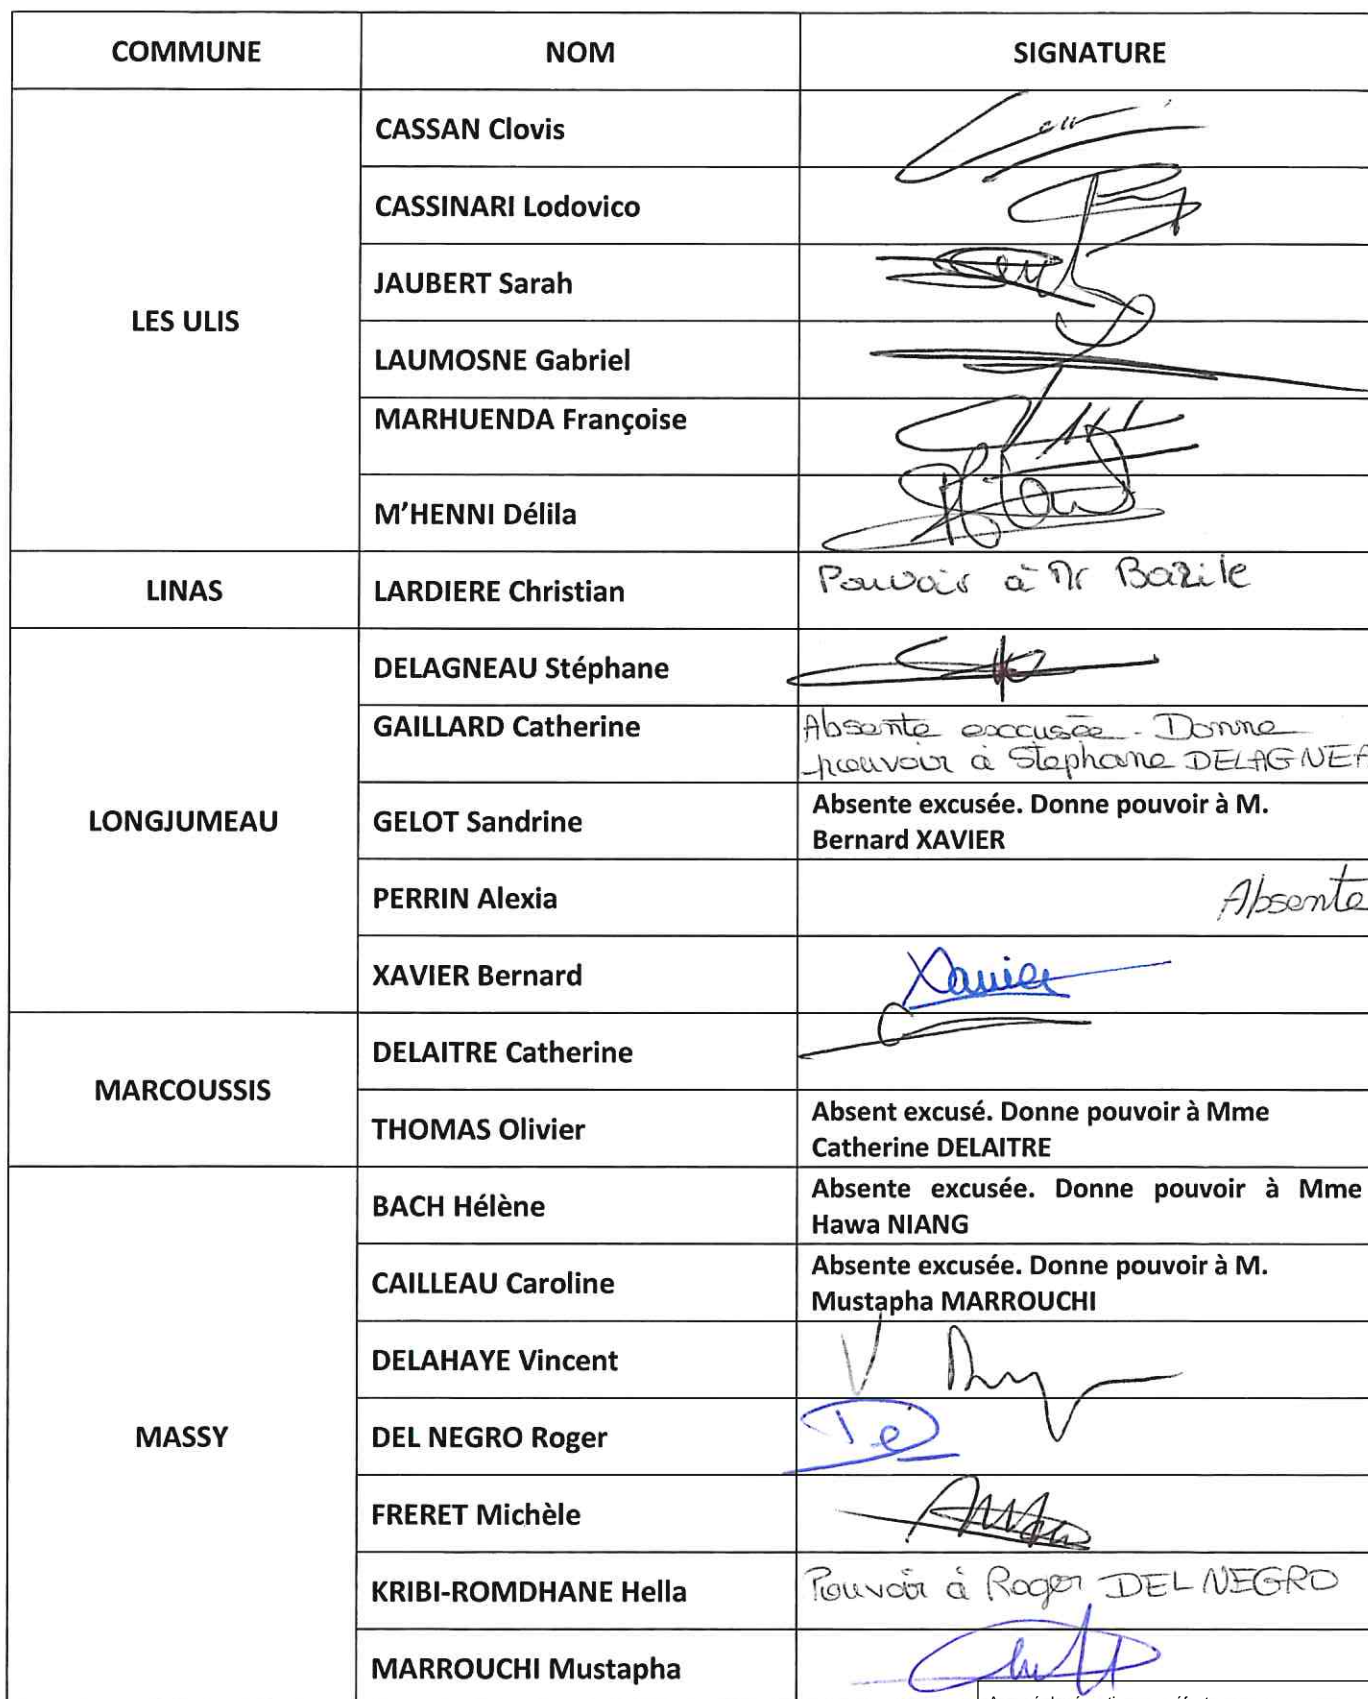 COMMUNE NOM SIGNATURE
LES ULIS
CASSAN Clovis
CASSINARI Lodovico
JAUBERT Sarah
LAUMOSNE Gabriel
MARHUENDA Françoise
M'HENNI Délila
LINAS
LARDIERE Christian
Pouvoir à Mr Bazile
LONGJUMEAU
DELAGNEAU Stéphane
GAILLARD Catherine
Absente excusée. Donne
pouvoir à Stephane DELAGNEA
GELOT Sandrine
Absente excusée. Donne pouvoir à M.
Bernard XAVIER
PERRIN Alexia
Absente
XAVIER Bernard
Xavier
MARCOUSSIS
DELAITRE Catherine
THOMAS Olivier
Absent excusé. Donne pouvoir à Mme
Catherine DELAITRE
MASSY
BACH Hélène
Absente excusée. Donne pouvoir à Mme
Hawa NIANG
CAILLEAU Caroline
Absente excusée. Donne pouvoir à M.
Mustapha MARROUCHI
DELAHAYE Vincent
DEL NEGRO Roger
FRERET Michèle
KRIBI-ROMDHANE Hella
Pouvoir à Roger DEL NEGRO
MARROUCHI Mustapha